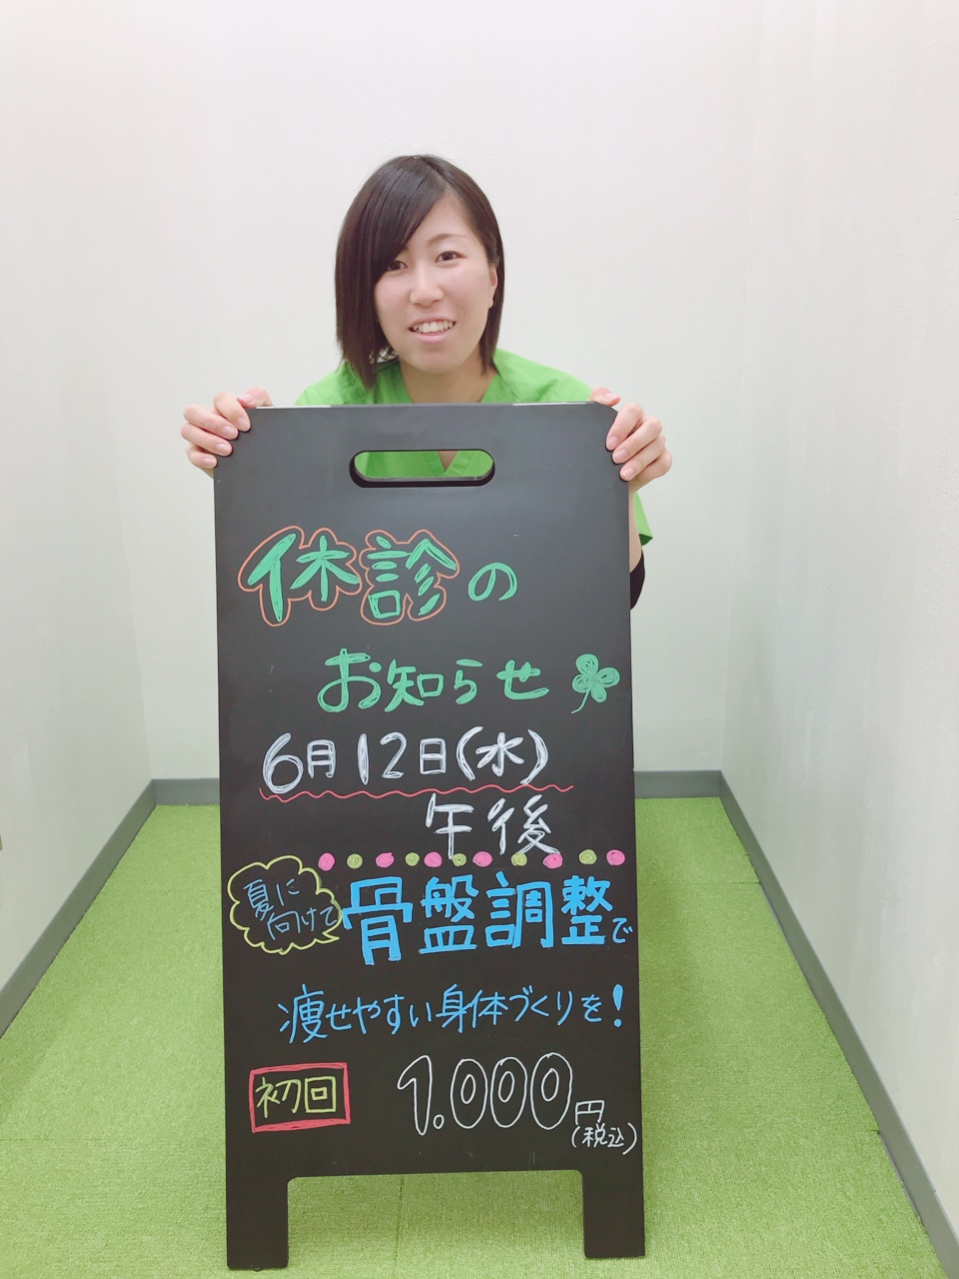 休診の
お知らせ
6月12日(水)
午後
夏に
向けて
骨盤調整で
痩せやすい身体づくりを!
初回
1.000円
(税込)